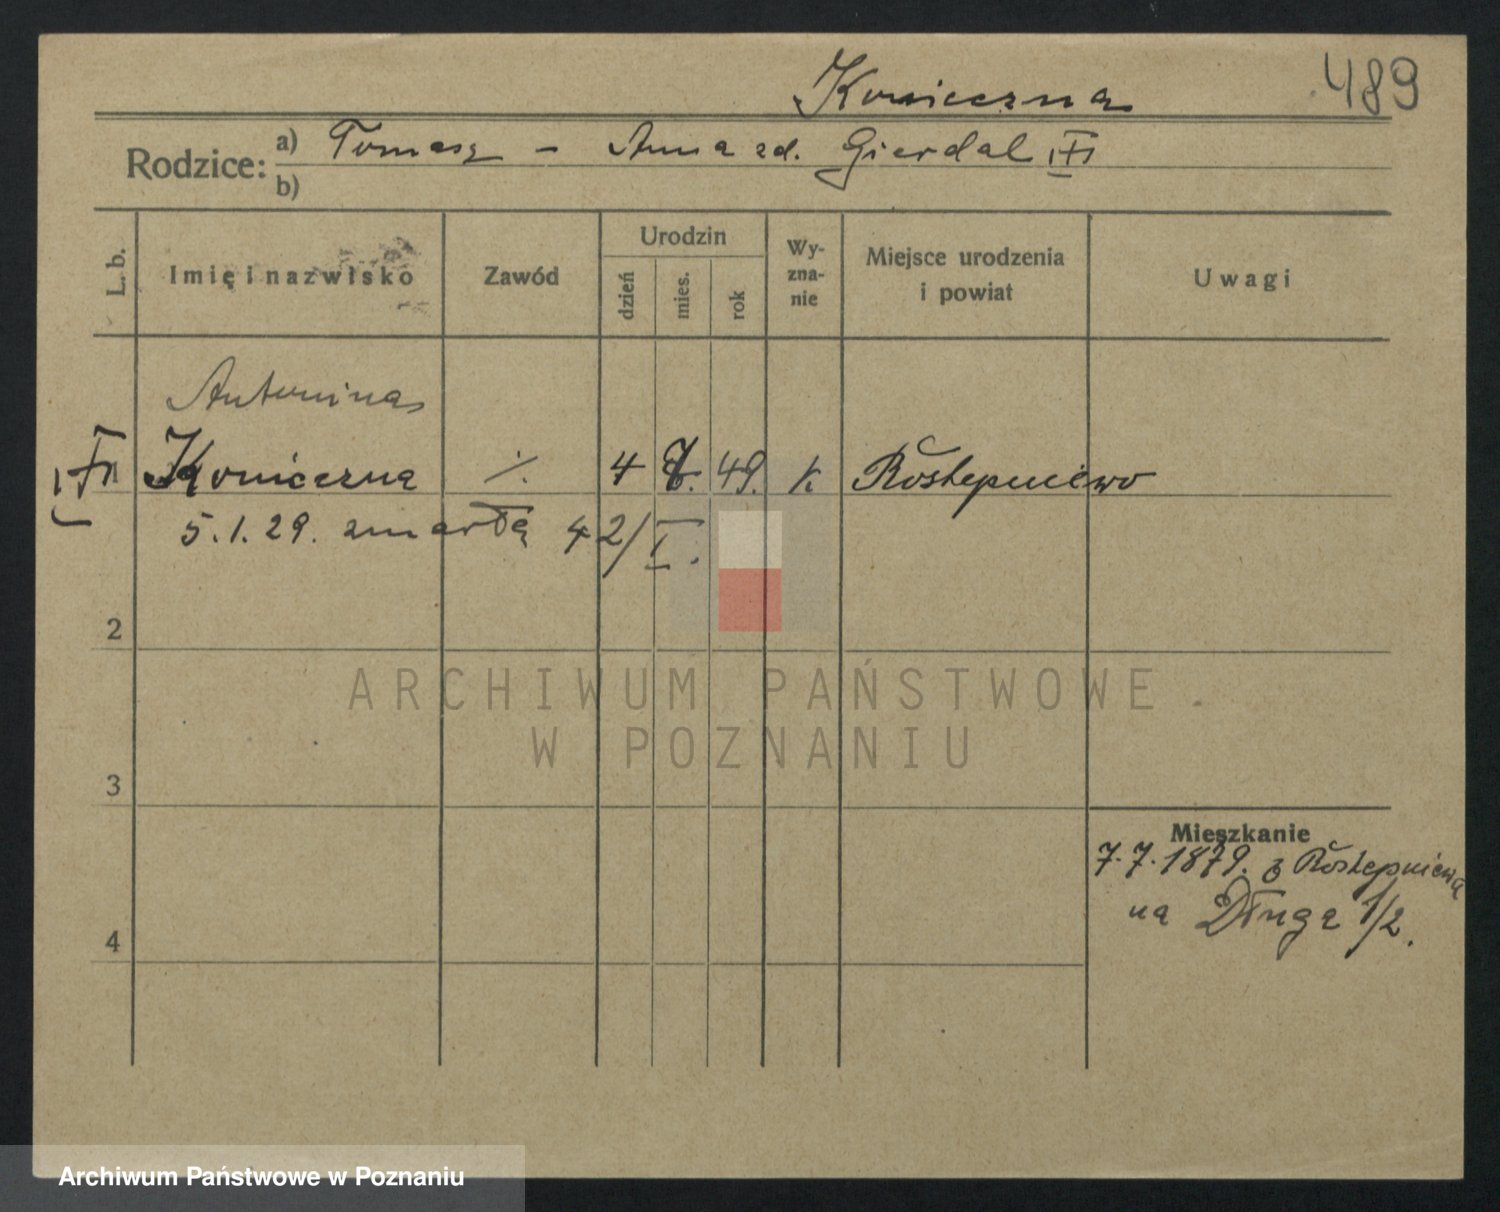 Konieczna
489
Rodzice: a) Tomasz - Anna zd. Gierdal
b)
L. b.
Imię i nazwisko
Zawód
Urodzin
dzień
mies.
rok
Wy-
zna-
nie
Miejsce urodzenia
i powiat
Uwagi
Antonina
Konieczna ./. 4 49. k Rostępniewo
5.1.29. zmarła 42/I.
2
ARCHIWUM PAŃSTWOWE
W POZNANIU
3
Mieszkanie
7.7.1879. z Rostępniewa
na Długa 1/2.
4
Archiwum Państwowe w Poznaniu